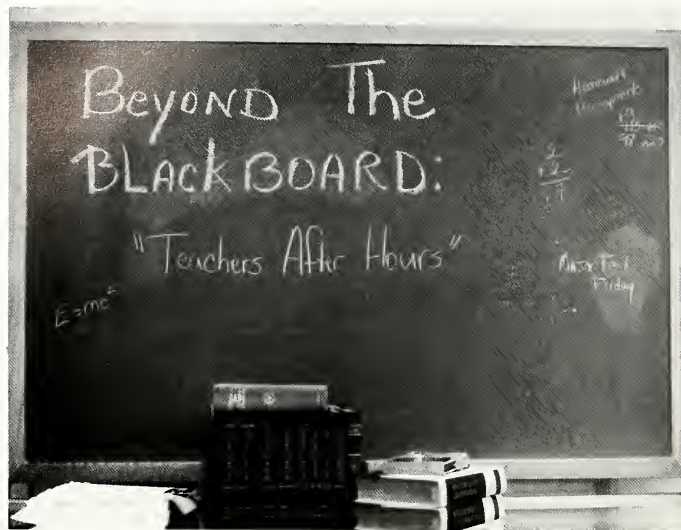 Beyond The
BLACKBOARD:
"Teachers After Hours"
E=mc²
Homework
2
+ 2
Friday